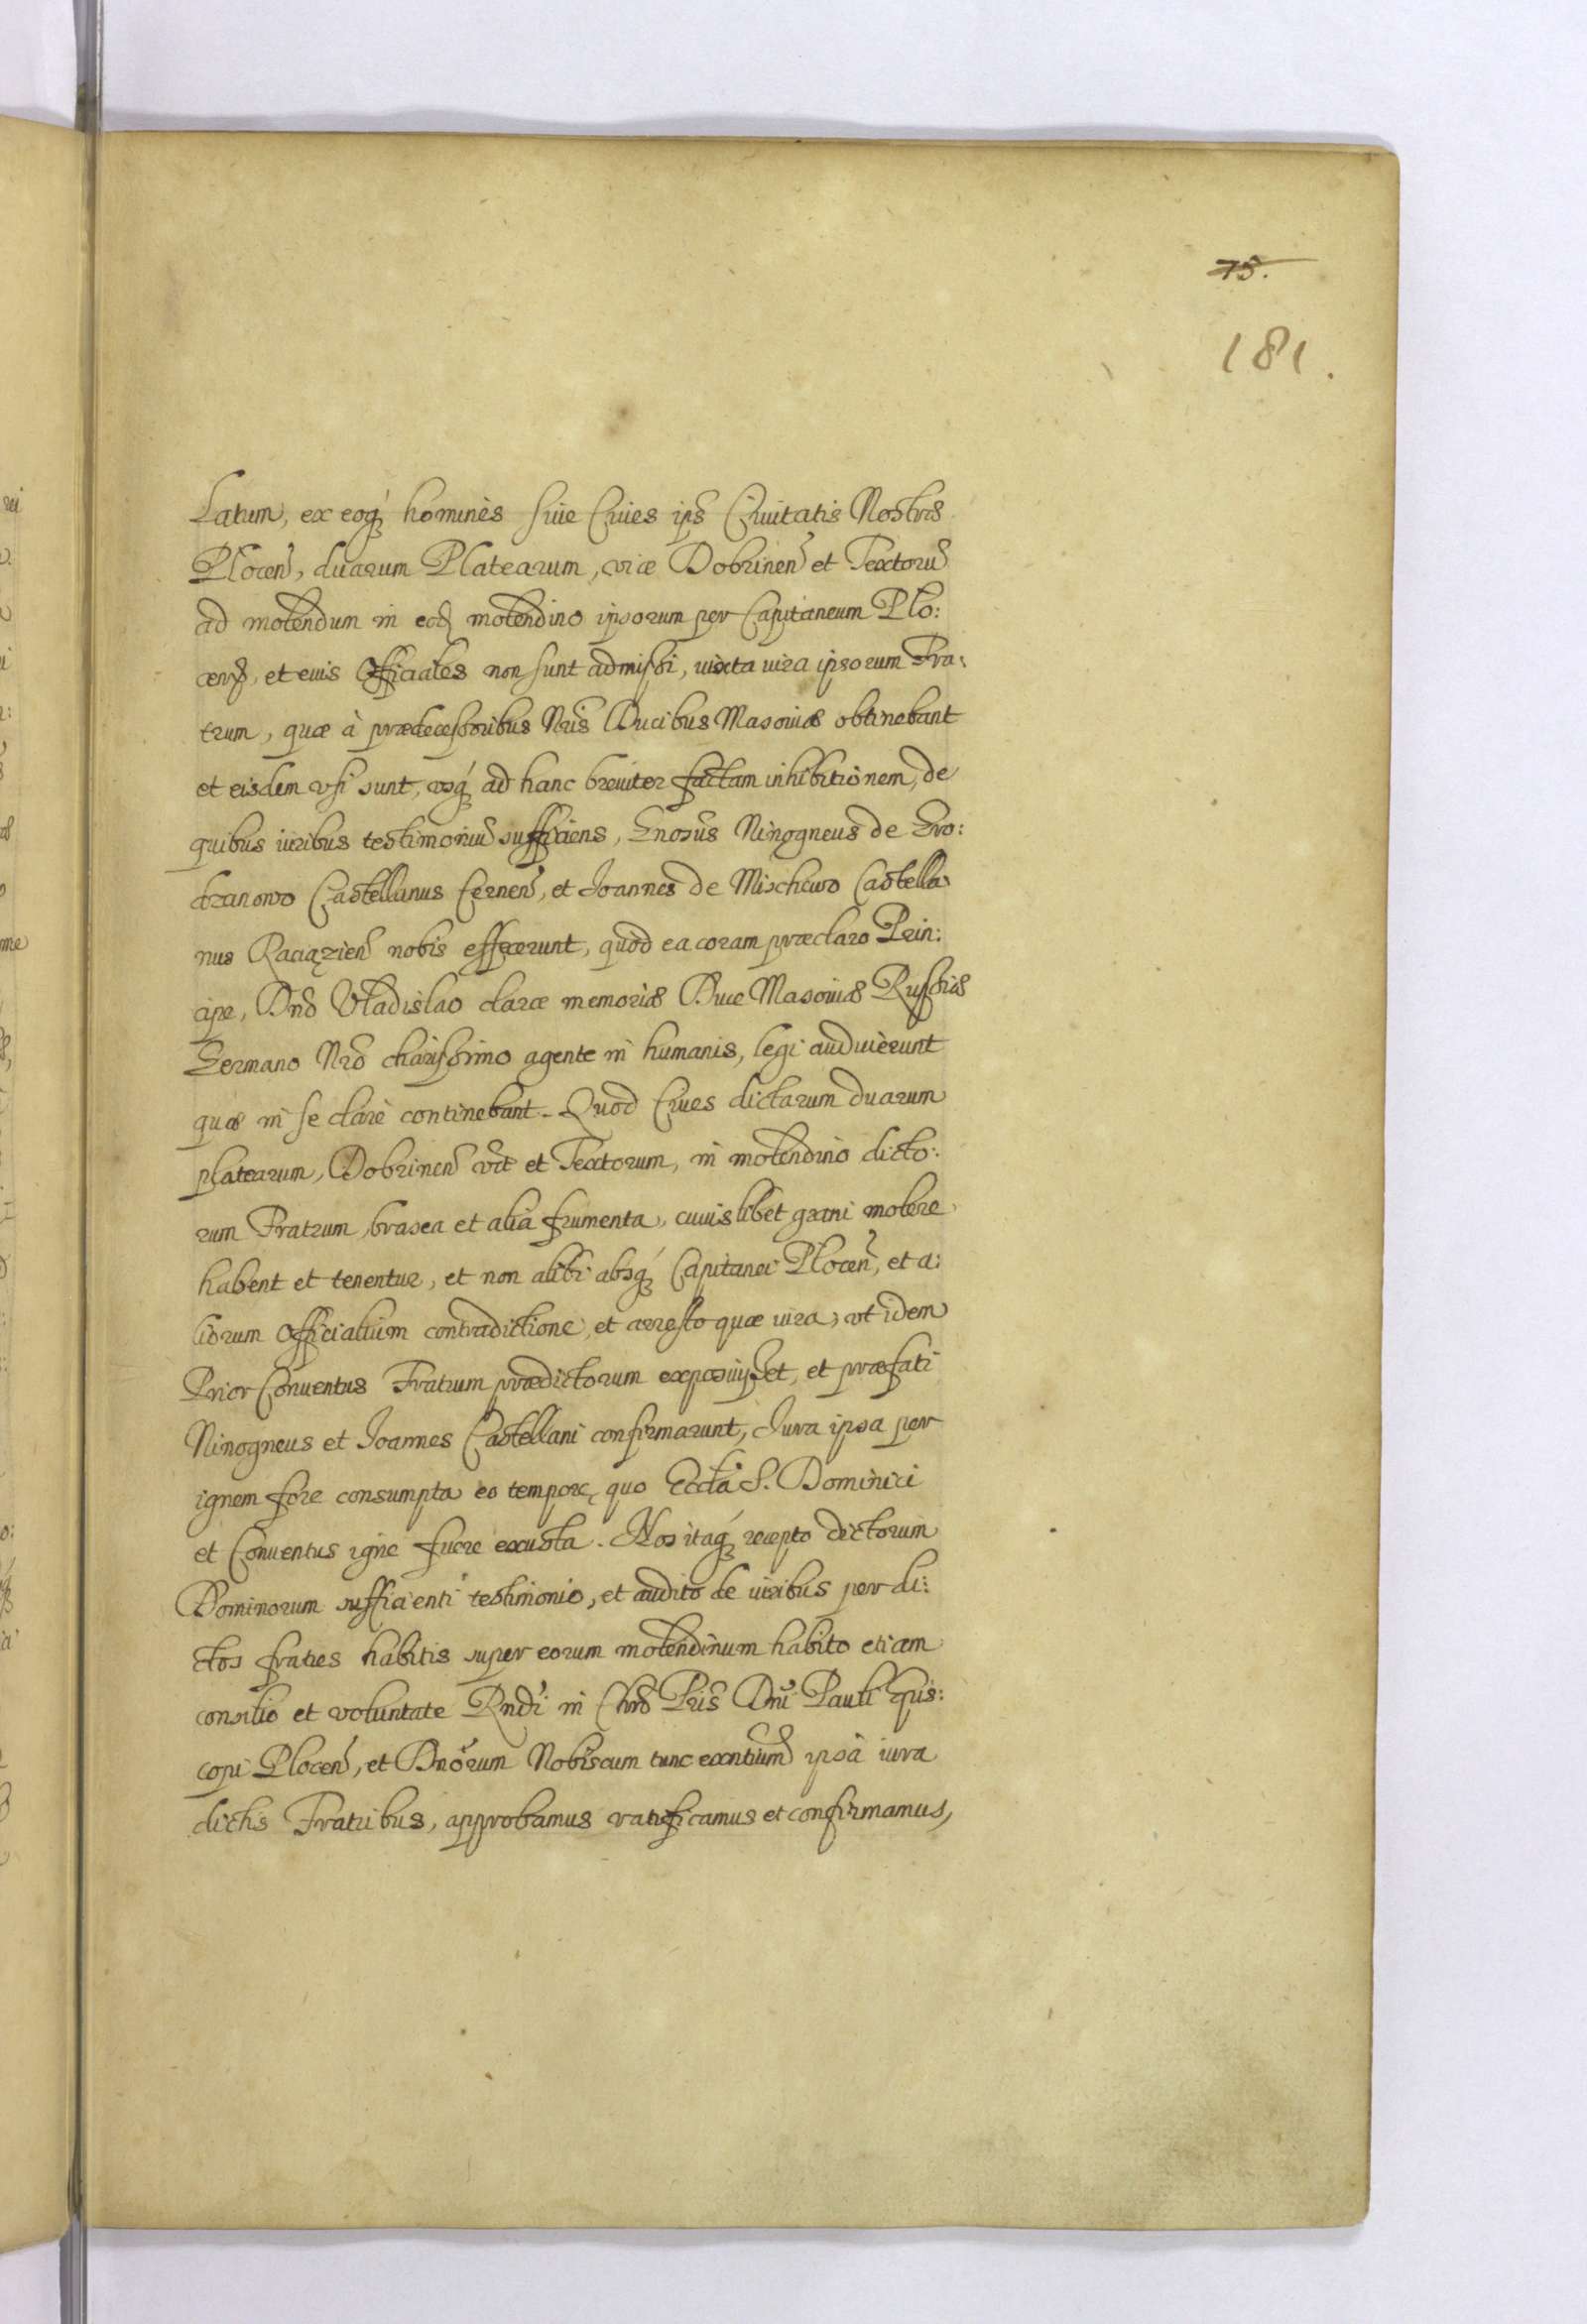 75.
181.
Latum, ex eoq́ꝫ hominès siue Ciues ips̃ Ciuitatis Nostræ
Plocen̄, duarum Platearum, viæ Dobrinen̄ et Textorū
ad molendum in eod̄ molendino ipsorum per Capitaneum Plo:
cen̄, et euis Officiales non sunt admissi, iuxta iura ipsorum Fra:
trum, quæ à prædecessoribus Nr̄is Ducibus Masouiæ obtinebant
et eisdem vsi sunt, vsq́ꝫ ad hanc breuiter factam inhibitionem, de
quibus iuribus testimoniū sufficiens, Gnosus Ninogneus de Gro:
dzanowo Castellanus Cernen̄, et Joannes de Mischewo Castella
nus Raciązien̄ nobis effecerunt, quòd ea coram præclaro Prin:
cipe, Dn̄o Vladislao claræ memoriæ Duce Masouiæ Russiæ
Germano Nr̄o charissimo agente in humanis, legi audiuèrunt
quæ in se clarè continebant. Quod Ciues dictarum duarum
platearum, Dobrinen̄ vc̄t et Textorum, in molendino dicto:
rum Fratrum, brasea et alia frumenta, cuiuslibet grani molere
habent et tenentur, et non alibi absq́ꝫ Capitanei Plocen̄, et a:
liorum Officialium contradictione, et arresto quæ iura, vt idem
Prior Conuentus Fratrum prædictorum exposuisset, et præfati
Ninogneus et Joannes Castellani confirmarunt, Jura ipsa per
ignem fore consumpta eo tempore, quo Eccl̄ia S. Dominici
et Conuentus igne fuere exusta. Nos itaq́ꝫ recepto dictorum
Dominorum sufficienti testimonio, et audito de iuribus per di:
ctos fratres habitis super eorum molendinum habito etiam
consilio et voluntate Rn̄di in Chr̄o Pr̄is Dn̄i Pauli Epis:
copi Plocen̄, et Dnōrum Nobiscum tunc exn̄tium ipsa iura
dictis Fratribus, approbamus ratificamus et confirmamus,